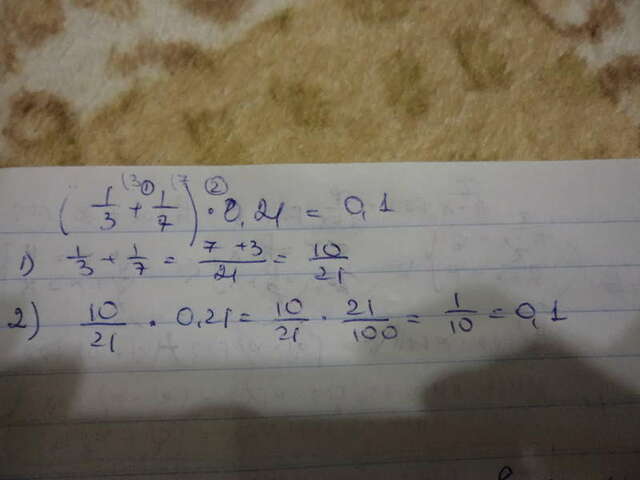 (3 ① (7 ②
( 1/3 + 1/7 ) · 0,21 = 0,1
1) 1/3 + 1/7 = 7+3/21 = 10/21
2) 10/21 · 0,21 = 10/21 · 21/100 = 1/10 = 0,1